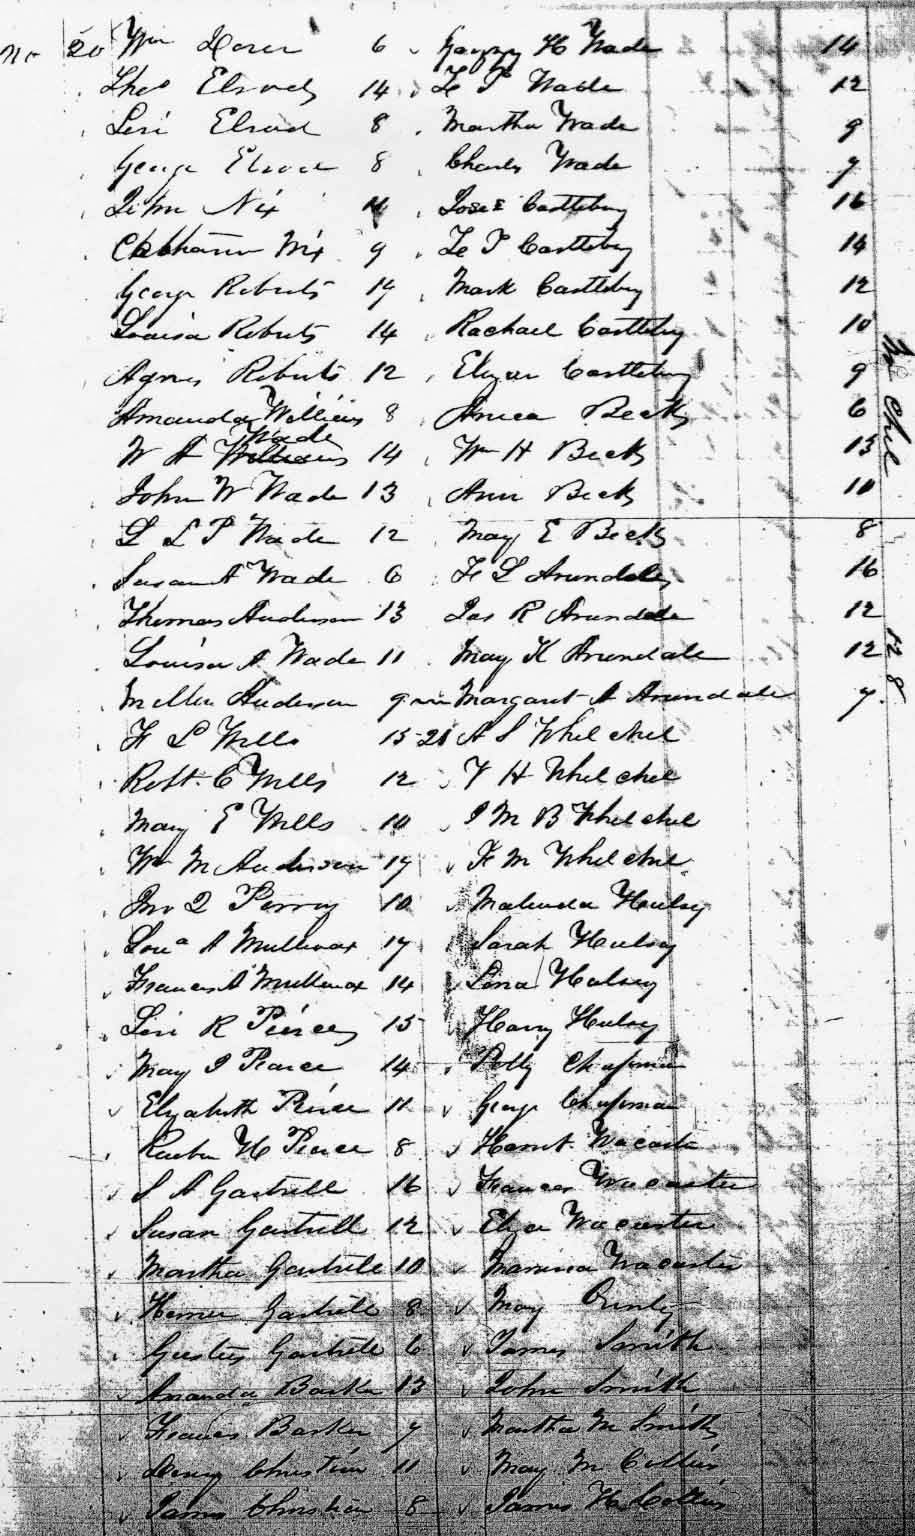 No 20 Wm 6 H Wade 14
Theo Elrod 14 F P Wade 12
Levi Elrod 8 Martha Wade 9
George Elrod 8 Charles Wade 7
John Nix 11 Castlebery 16
Nix 9 F P Castlebery 14
George Roberts 17 Mark Castlebery 12
Louisa Roberts 14 Rachael Castlebery 10
Agnes Roberts 12 Castlebery 9
Amanda Williams 8 Beck 6
Wade
W A Williams 14 Wm H Beck 13
John W Wade 13 Ann Beck 10
L L P Wade 12 Mary E Beck 8
Susan A Wade 6 F L Arundale 16
Thomas Anderson 13 Jas R Arundale 12
Louisa A Wade 11 Mary K Arundale 12
Anderson 9 Margaret A Arundale 7
F L Wells 15 21 A S Whelchel
Robt C Wells 12 V H Whelchel
Mary E Wells 10 J M B Whelchel
Wm M Anderson 17 F M Whelchel
Jno Q Perry 10 Malinda Hulsey
Loua A Mullinax 17 Sarah Hulsey
Frances A Mullinax 14 Lina Hulsey
Levi R Peirce 15 Harry Hulsey
Mary J Pearce 14 Polly Chapman
Elizabeth Peirce 11 George Chapman
H Peirce 8 Wacaster
S A Gartrell 16 Frances Wacaster
Susan Gartrell 12 Wacaster
Martha Gartrell 10 Wacaster
Gartrell 8 Mary
Gartrell 6 James Smith
Amanda Barker 13 John Smith
Frances Barker 7 Martha M Smith
Christian 11 Mary M Collins
James Christian 8 James H Collins
128